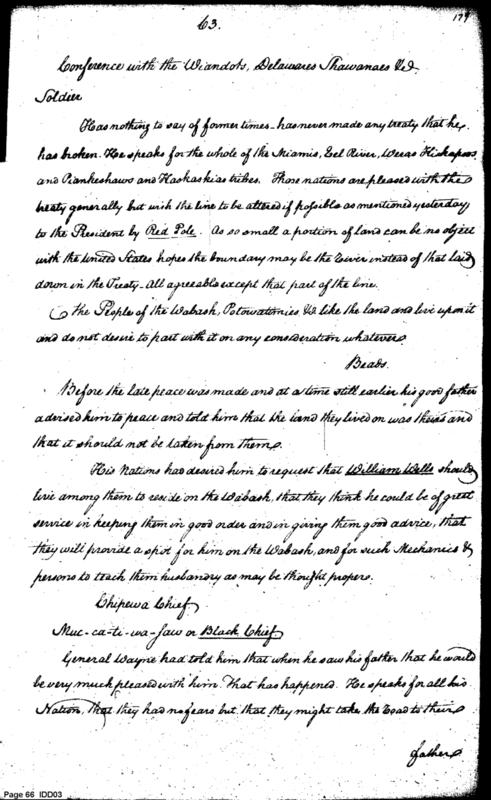 63.
179
Conference with the Wiandots, Delawares Shawanaes &c.
Soldier
Has nothing to say of former times - has never made any treaty that he
has broken. He speaks for the whole of the Miamis, Eel River, Weeas Kickapoos
and Piankeshaws and Kaskaskias tribes. Those nations are pleased with the
treaty generally but wish the line to be altered if possible as mentioned yesterday
to the President by Red Pole. As so small a portion of land can be no object
with the United States hopes the boundary may be the River instead of that laid
down in the Treaty. All agreeable except that part of the line.
The People of the Wabash, Potowatomies &c like the land and live upon it
and do not desire to part with it on any consideration whatever
Beads.
Before the late peace was made and at a time still earlier his good father
advised him to peace and told him that the land they lived on was theirs and
that it should not be taken from them
His Nations had desired him to request that William Wells should
live among them to reside on the Wabash, that they think he could be of great
service in keeping them in good order and in giving them good advice, that
they will provide a spot for him on the Wabash, and for such Mechanics &
persons to teach them husbandry as may be thought proper.
Chipewa Chief
Muc-ca-ti-wa-saw or Black Chief
General Wayne had told him that when he saw his father that he would
be very much pleased with him. That has happened. He speaks for all his
Nation, that they had no fears but that they might take the road to their
father
Page 66 IDD03